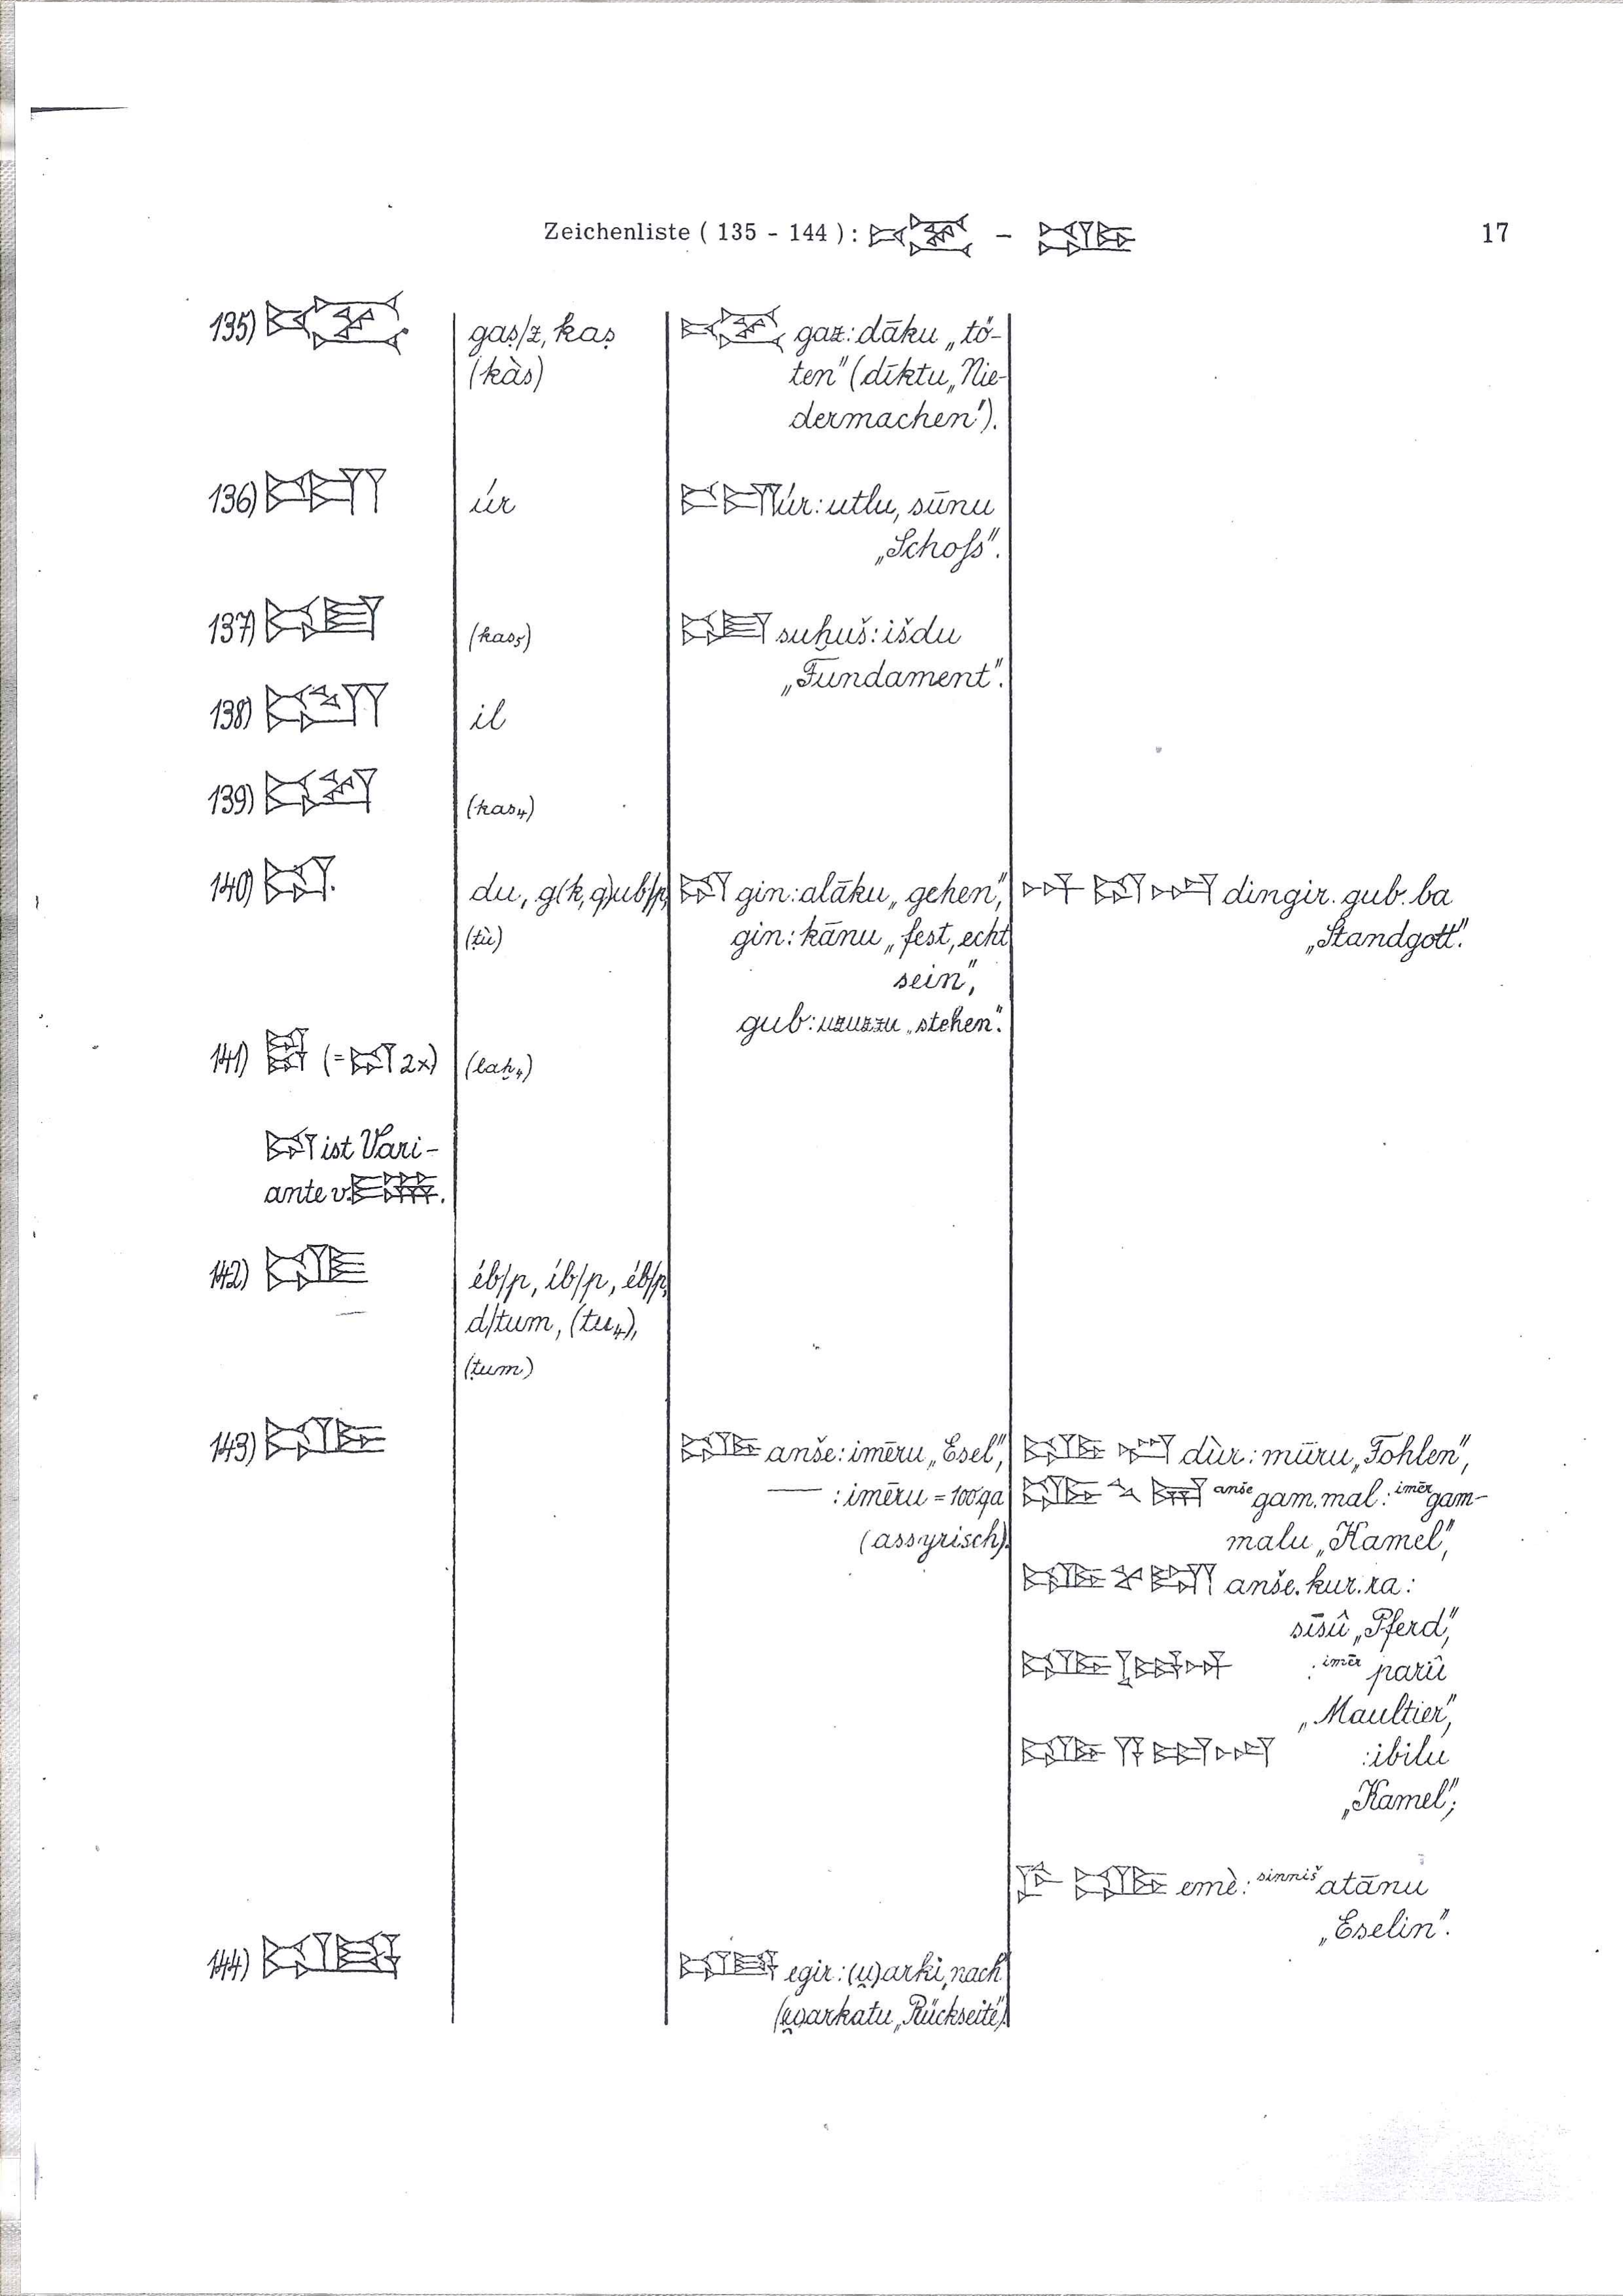 Zeichenliste ( 135 - 144 ) : 𒄤 - 𒀲
17
135) 𒄤
gaṣ/z, kaṣ
(kàs)
𒄤 gaz: dāku „tö-
ten" (dīktu „Nie-
dermachen").
136) 𒌫
úr
𒌫 úr: utlu, sūnu
„Schoſs".
137) 𒁼
(kas₅)
𒁼 suḫuš: išdu
„Fundament".
138) 𒅋
il
139) 𒁽
(kas₄)
140) 𒁺
du, g(k, q)ub/p,
(ṭù)
𒁺 gin: alāku „gehen",
gin: kānu „fest, echt
sein",
gub: uzuzzu „stehen".
𒀭 𒁺 𒁀 dingir. gub. ba
„Standgott".
141) 𒁻 (= 𒁺 2x)
(laḫ₄)
𒁺 ist Vari-
ante v.
142) 𒌈
éb/p, íb/p, éb/p,
d/tum, (tu₄),
(ṭum)
143) 𒀲
𒀲 anše: imēru „Esel",
— : imēru = 100 qa
(assyrisch).
𒀲 dùr: mūru „Fohlen",
𒀲 𒃵 𒂷 anše gam. mal: imēr gam-
malu „Kamel",
𒀲 𒆳 𒊏 anše. kur. ra:
sīsû „Pferd",
𒀲 : imēr parû
„Maultier",
𒀲 𒀀 𒀊 𒁀 : ibilu
„Kamel";
𒊩 𒀲 emè: sinniš atānu
„Eselin".
144) 𒂕
𒂕 egir: (u̯)arki „nach"
(u̯)arkatu „Rückseite").